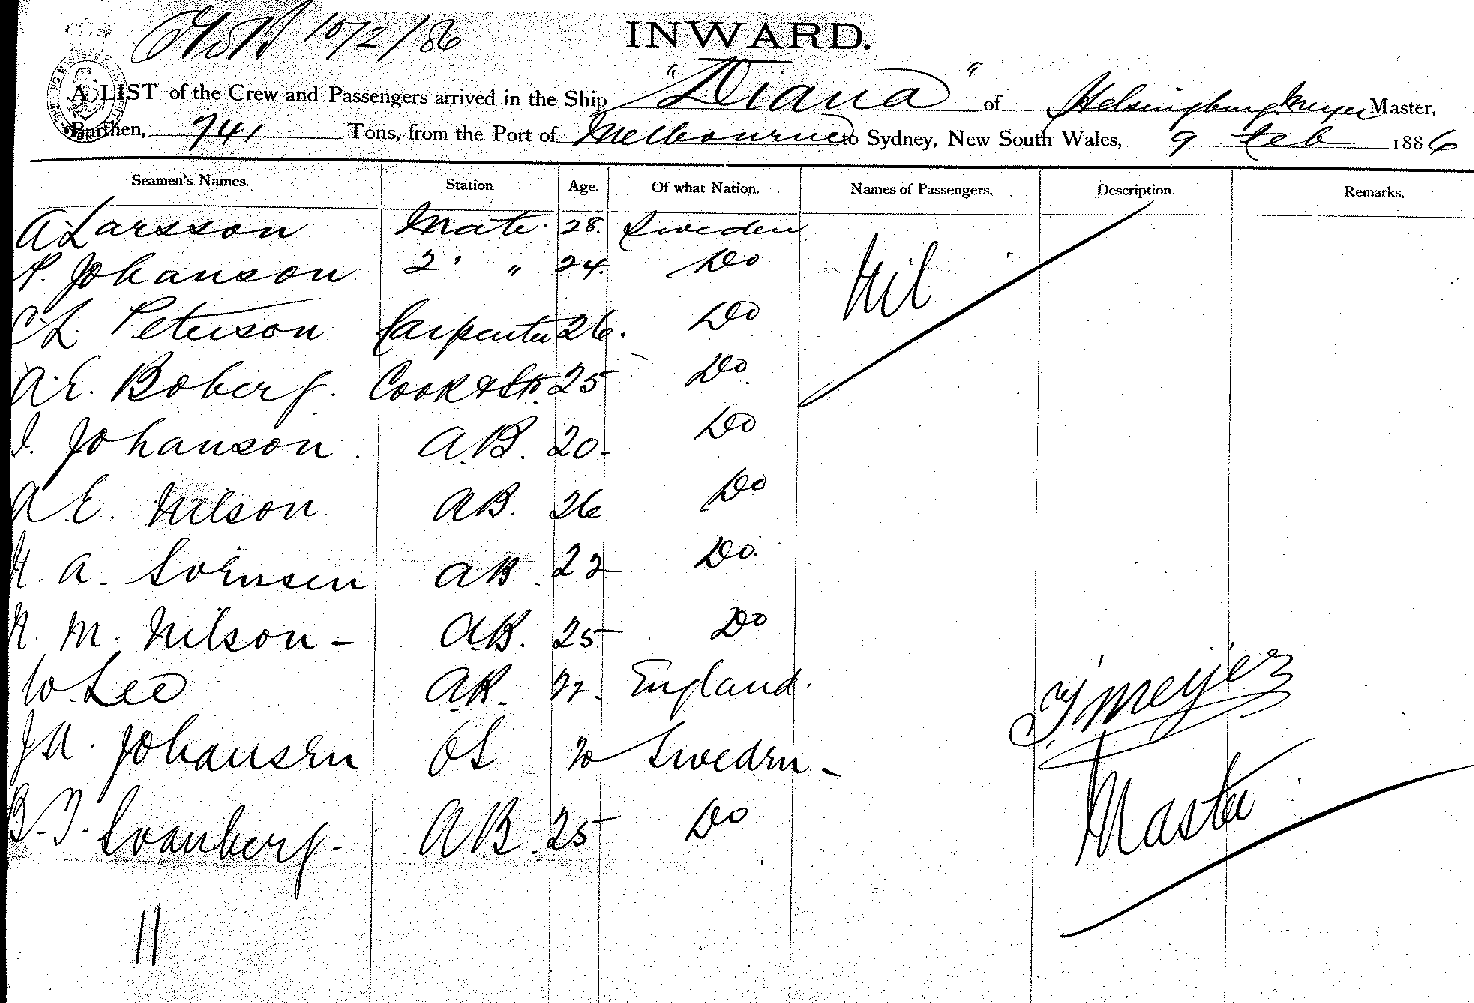 10/2/86
INWARD.
A LIST of the Crew and Passengers arrived in the Ship "Diana" of Helsingburg Meyer Master,
Burthen, 741 Tons, from the Port of Melbourne to Sydney, New South Wales, 9 Feb 1886
Seamen's Names. Station Age. Of what Nation. Names of Passengers. Description. Remarks.
A Larsson Mate. 28. Sweden
P. Johanson 2d " 24 Do
C L Peterson Carpenter 26. Do
A. E. Boberg. Cook & St. 25 Do
I. Johanson A.B. 20- Do
A E. Nilson AB. 26 Do
N. A. Sörnsen AB. 22 Do.
N. M. Nilson - AB. 25 Do
W. Lee A.B. 22. England.
J A. Johansen OS 20 Sweden -
B. T. Svanberg. - AB. 25 Do
Nil
T Meijer
Master
11